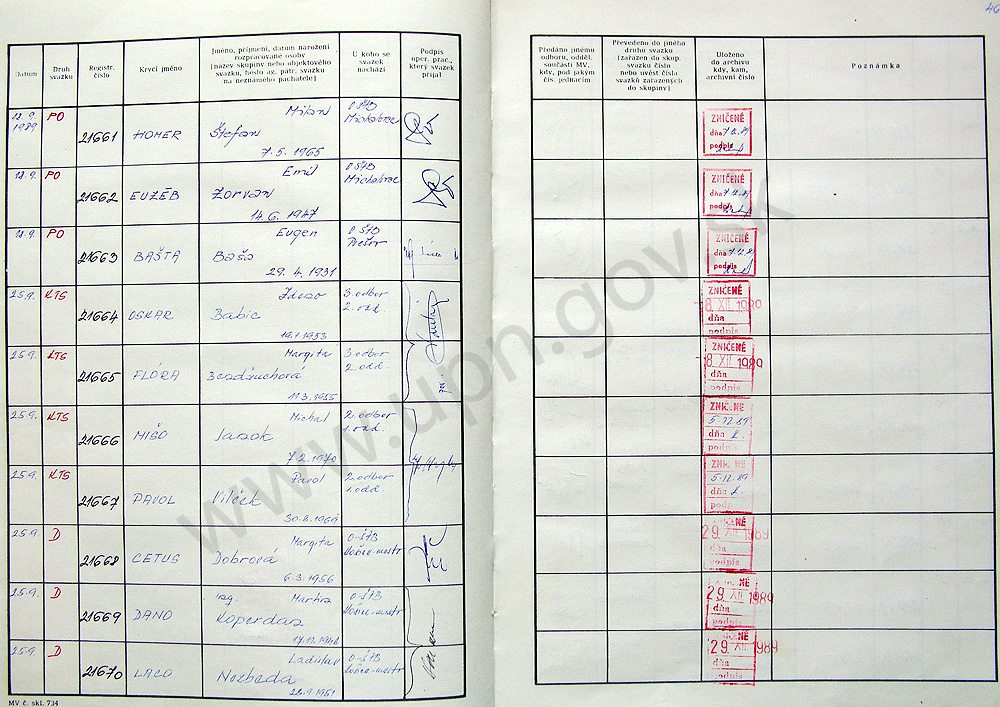 46
Datum
Druh svazku
Registr. číslo
Krycí jméno
Jméno, příjmení, datum narození
rozpracované osoby
(název skupiny nebo objektového
svazku, heslo ag. pátr. svazku
na neznámého pachatele)
U koho se
svazek
nachází
Podpis
oper. prac.,
který svazek
přijal
Předáno jinému
odboru, odděl.
součásti MV,
kdy, pod jakým
čís. jednacím
Převedeno do jiného
druhu svazku
(zařazen do skup.
svazku číslo
nebo uvést čísla
svazků zařazených
do skupiny)
Uloženo
do archivu
kdy, kam,
archivní číslo
Poznámka
18.9. 1989 PO 21661 HOMER Milan
Štefan
7.5.1965
O ŠTB
Michalovce
ZNIČENÉ
dňa 7.12.89
podpis
18.9. PO 21662 EUZÉB Emil
Zorvan
14.6.1947
O ŠTB
Michalovce
ZNIČENÉ
dňa 7.12.89
podpis
18.9. PO 21663 BAŠTA Eugen
Bašo
29.4.1931
O ŠTB
ZNIČENÉ
dňa 7.12.89
podpis
25.9. KTS 21664 OSKAR
Babic
19.1.1953
3. odbor
2. odd.
ZNIČENÉ
-8. XII. 1989
dňa
podpis
25.9. KTS 21665 FLÓRA Margita
11.3.1955
3. odbor
2. odd.
ZNIČENÉ
-8. XII. 1989
dňa
podpis
25.9. KTS 21666 MIŠO Michal
7.2.1970
2. odbor
1. odd.
ZNIČENÉ
5.12.89
dňa
podpis
25.9. KTS 21667 PAVOL Pavol
Vlček
30.8.1969
2. odbor
1. odd.
ZNIČENÉ
5.12.89
dňa
pod
25.9. D 21668 CETUS Margita
Dobrová
6.3.1956
O-ŠTB
ZNIČENÉ
29. XII. 1989
dňa
podpis
25.9. D 21669 DANO ing. Martin
Koperdan
O-ŠTB
29. XII. 1989
dňa
podpis
25.9. D 21670 LACO Ladislav
Nezbeda
22.9.1951
O-ŠTB
29. XII. 1989
dňa
MV č. skl. 734
www.upn.gov.sk